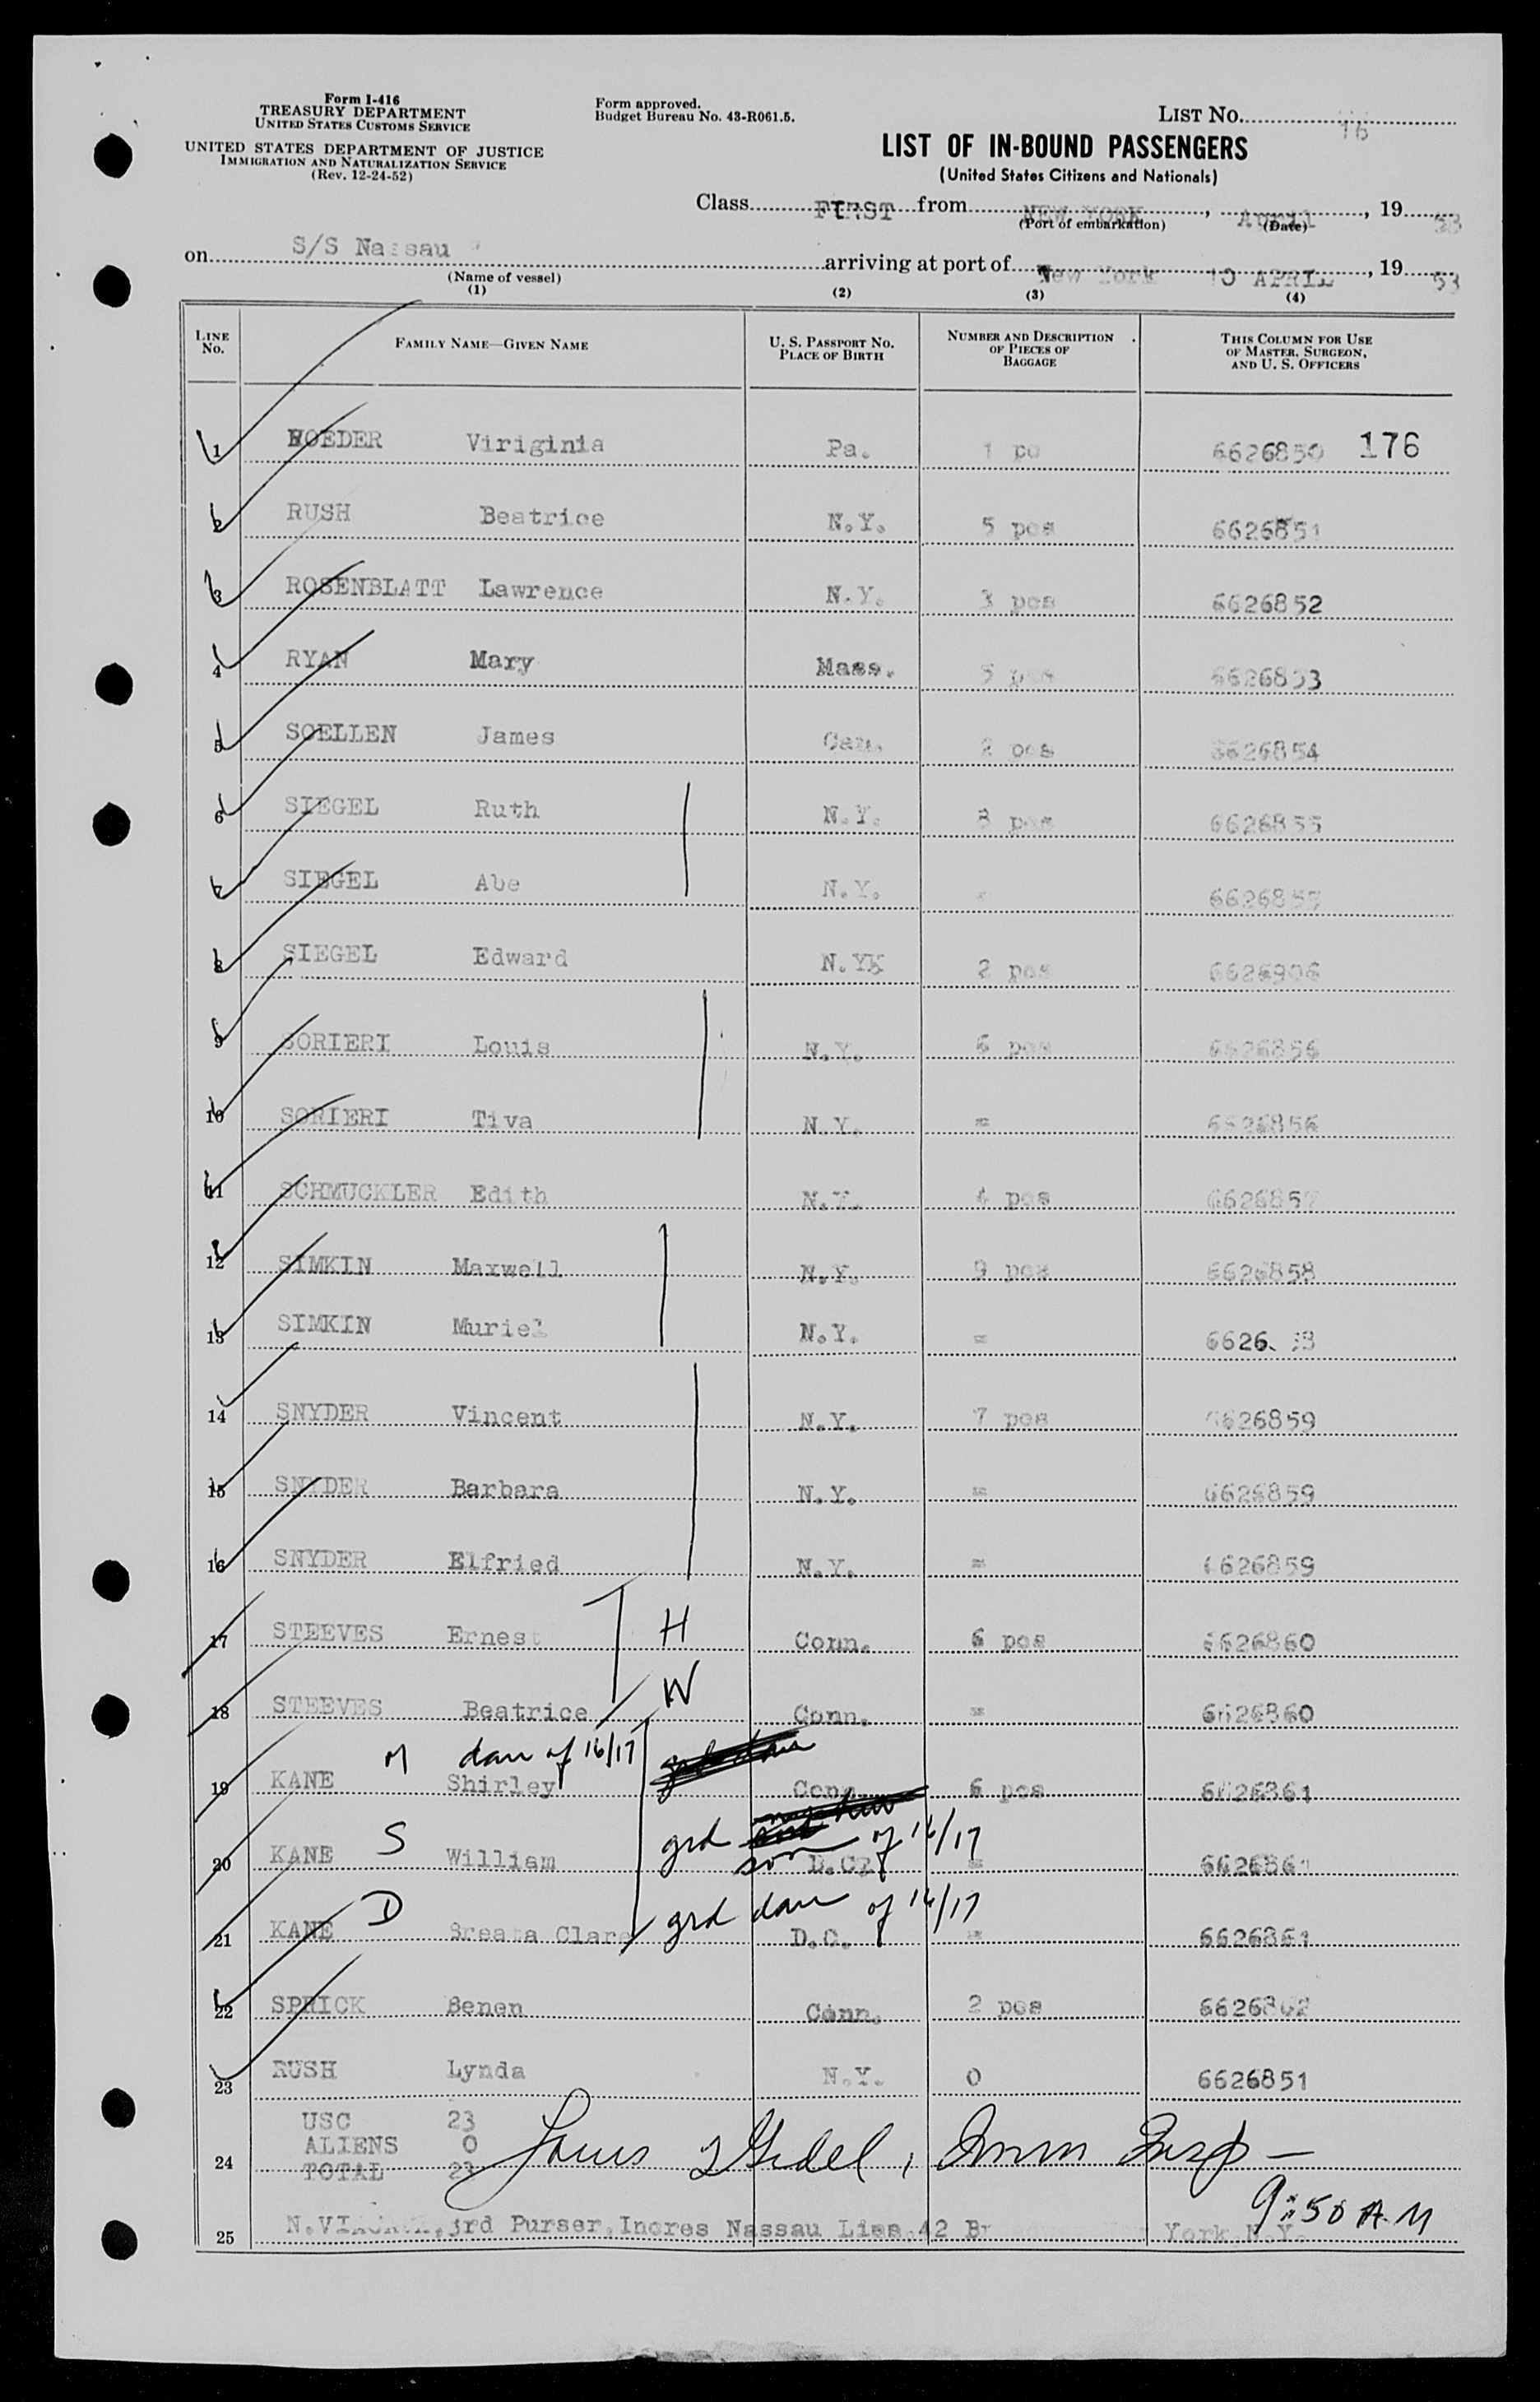 Form I-416
TREASURY DEPARTMENT
UNITED STATES CUSTOMS SERVICE
UNITED STATES DEPARTMENT OF JUSTICE
IMMIGRATION AND NATURALIZATION SERVICE
(Rev. 12-24-52)
Form approved.
Budget Bureau No. 43-R061.5.
LIST NO. 16
LIST OF IN-BOUND PASSENGERS
(United States Citizens and Nationals)
Class FIRST from NEW YORK, April, 19 53
(Port of embarkation) (Date)
on S/S Nassau arriving at port of New York 10 APRIL, 19 53
(Name of vessel)
(1) (2) (3) (4)
LINE NO. FAMILY NAME—GIVEN NAME U. S. PASSPORT NO. PLACE OF BIRTH NUMBER AND DESCRIPTION OF PIECES OF BAGGAGE THIS COLUMN FOR USE OF MASTER, SURGEON, AND U. S. OFFICERS
1 ROEDER Viriginia Pa. 1 pc 6626850 176
2 RUSH Beatrice N.Y. 5 pcs 6626851
3 ROSENBLATT Lawrence N.Y. 3 pcs 6626852
4 RYAN Mary Mass. 5 pcs 6626853
5 SOELLEN James Can. 2 pcs 6626854
6 SIEGEL Ruth N.Y. 8 pcs 6626855
7 SIEGEL Abe N.Y. 6626855
8 SIEGEL Edward N.Y. 2 pcs 6626906
9 SORIERI Louis N.Y. 6 pcs 6626856
10 SORIERI Tiva N.Y. = 6626856
11 SCHMUCKLER Edith N.Y. 4 pcs 6626857
12 SIMKIN Maxwell N.Y. 9 pcs 6626858
13 SIMKIN Muriel N.Y. =
14 SNYDER Vincent N.Y. 7 pcs 6626859
15 SNYDER Barbara N.Y. = 6626859
16 SNYDER Elfried N.Y. = 6626859
17 STEEVES Ernest H Conn. 6 pcs 6626860
18 STEEVES Beatrice W Conn. = 6626860
M dau of 16/17
19 KANE Shirley Conn. 6 pcs 6626861
20 KANE S William grd son of 16/17 D.C. = 6626861
21 KANE D Clare grd dau of 16/17 D.C. = 6626861
22 SPRICK Senen Conn. 2 pcs 6626862
23 RUSH Lynda N.Y. 0 6626851
USC 23
ALIENS 0
24 TOTAL 23 Immn Insp —
9:50 A.M
25 3rd Purser, Incres Nassau Line, 42 York N.Y.